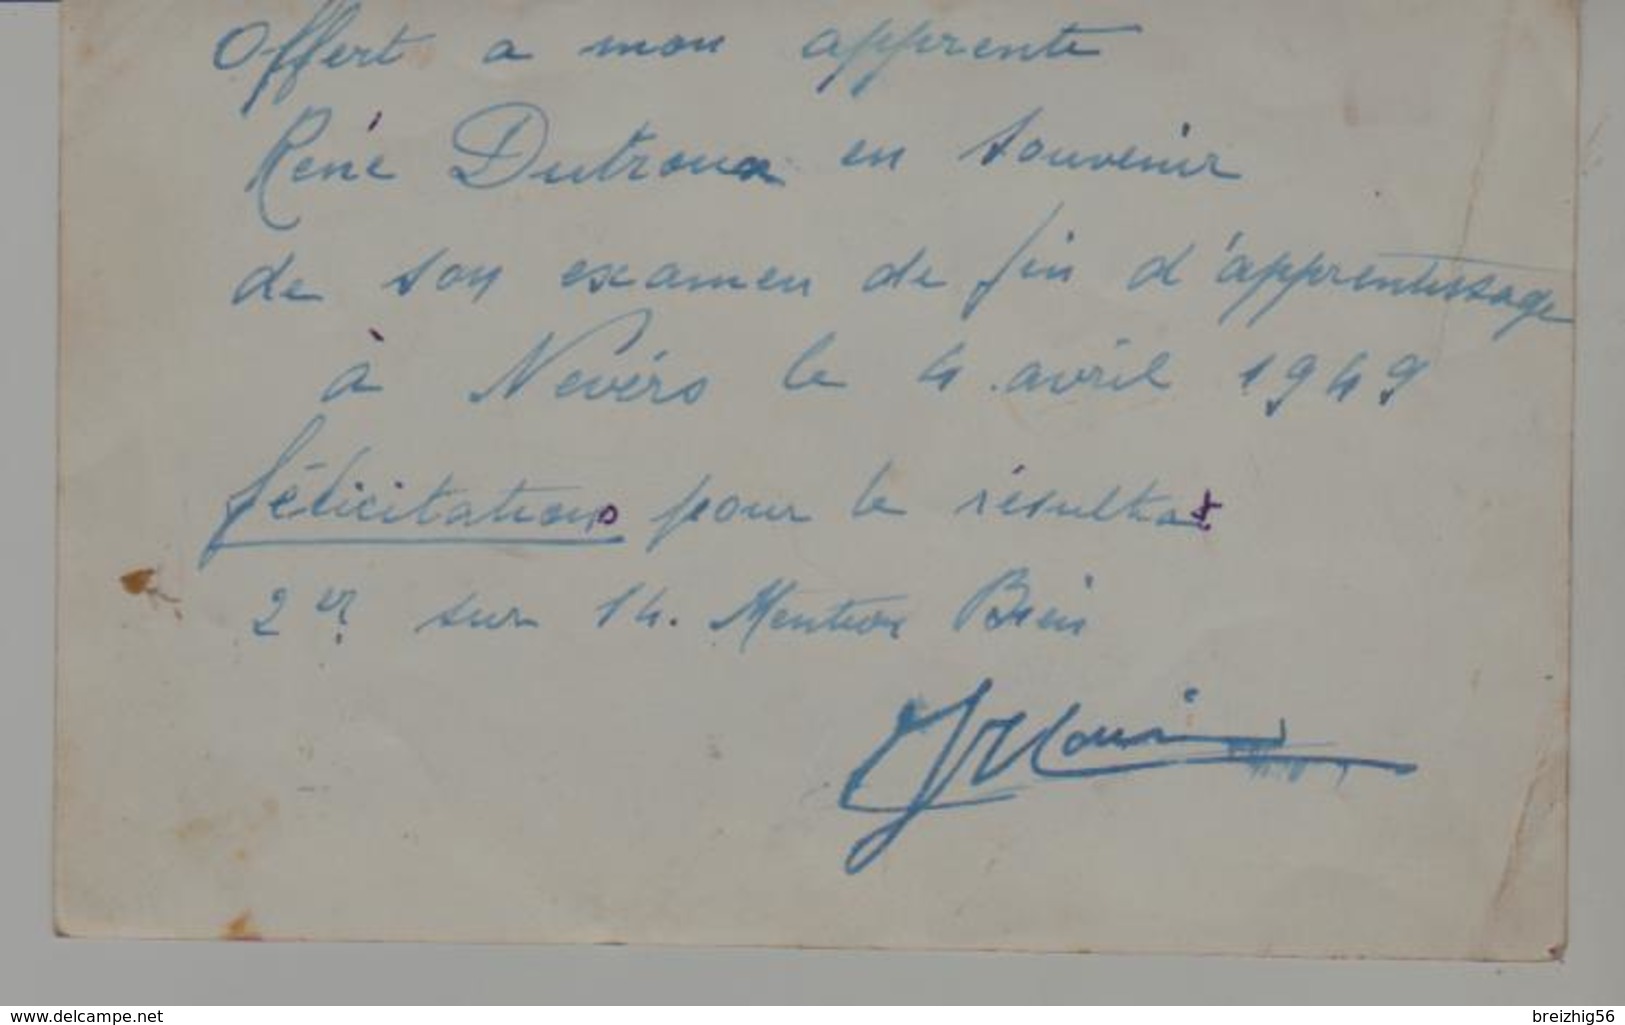 Offert a mon apprenti
René Dutroux en souvenir
de son examen de fin d'apprentissage
à Nevérs le 4 avril 1949
félicitations pour le résultat
2er sur 14. Mention Bien
www.delcampe.net
breizhig56